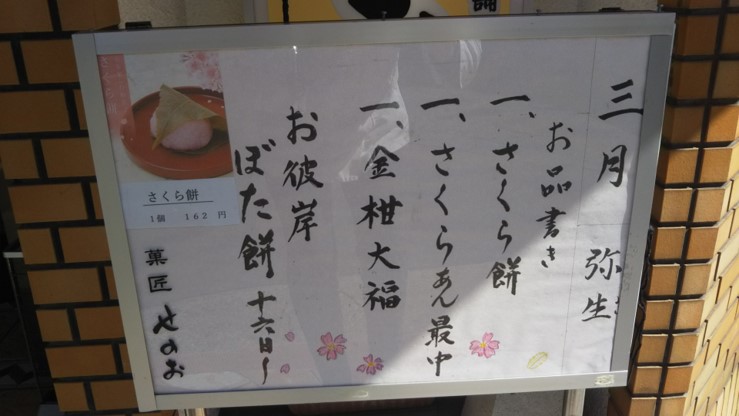 三月 弥生
お品書き
一、さくら餅
一、さくらあん最中
一、金柑大福
お彼岸
ぼた餅 十六日〜
さくら餅
1個 162円
菓匠 せのお